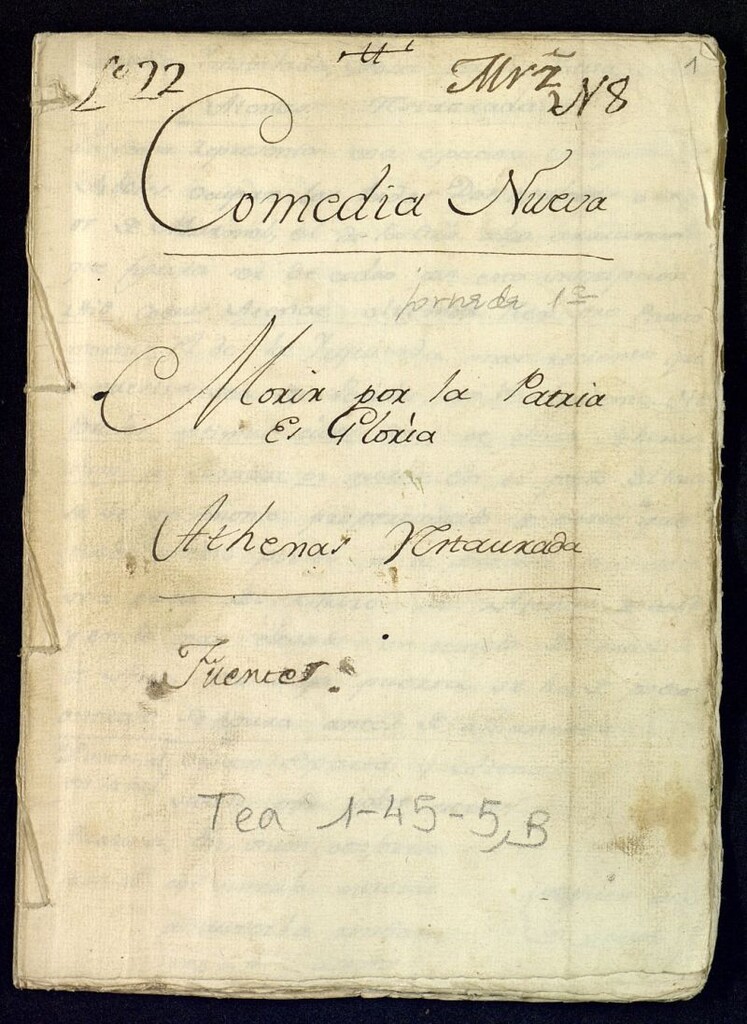 1
Lº 22
N 8
Comedia Nueva
jornada 1ª
Morir por la Patria
Es Gloria
Athenas Restaurada
Fuentes.
Tea 1-45-5, B